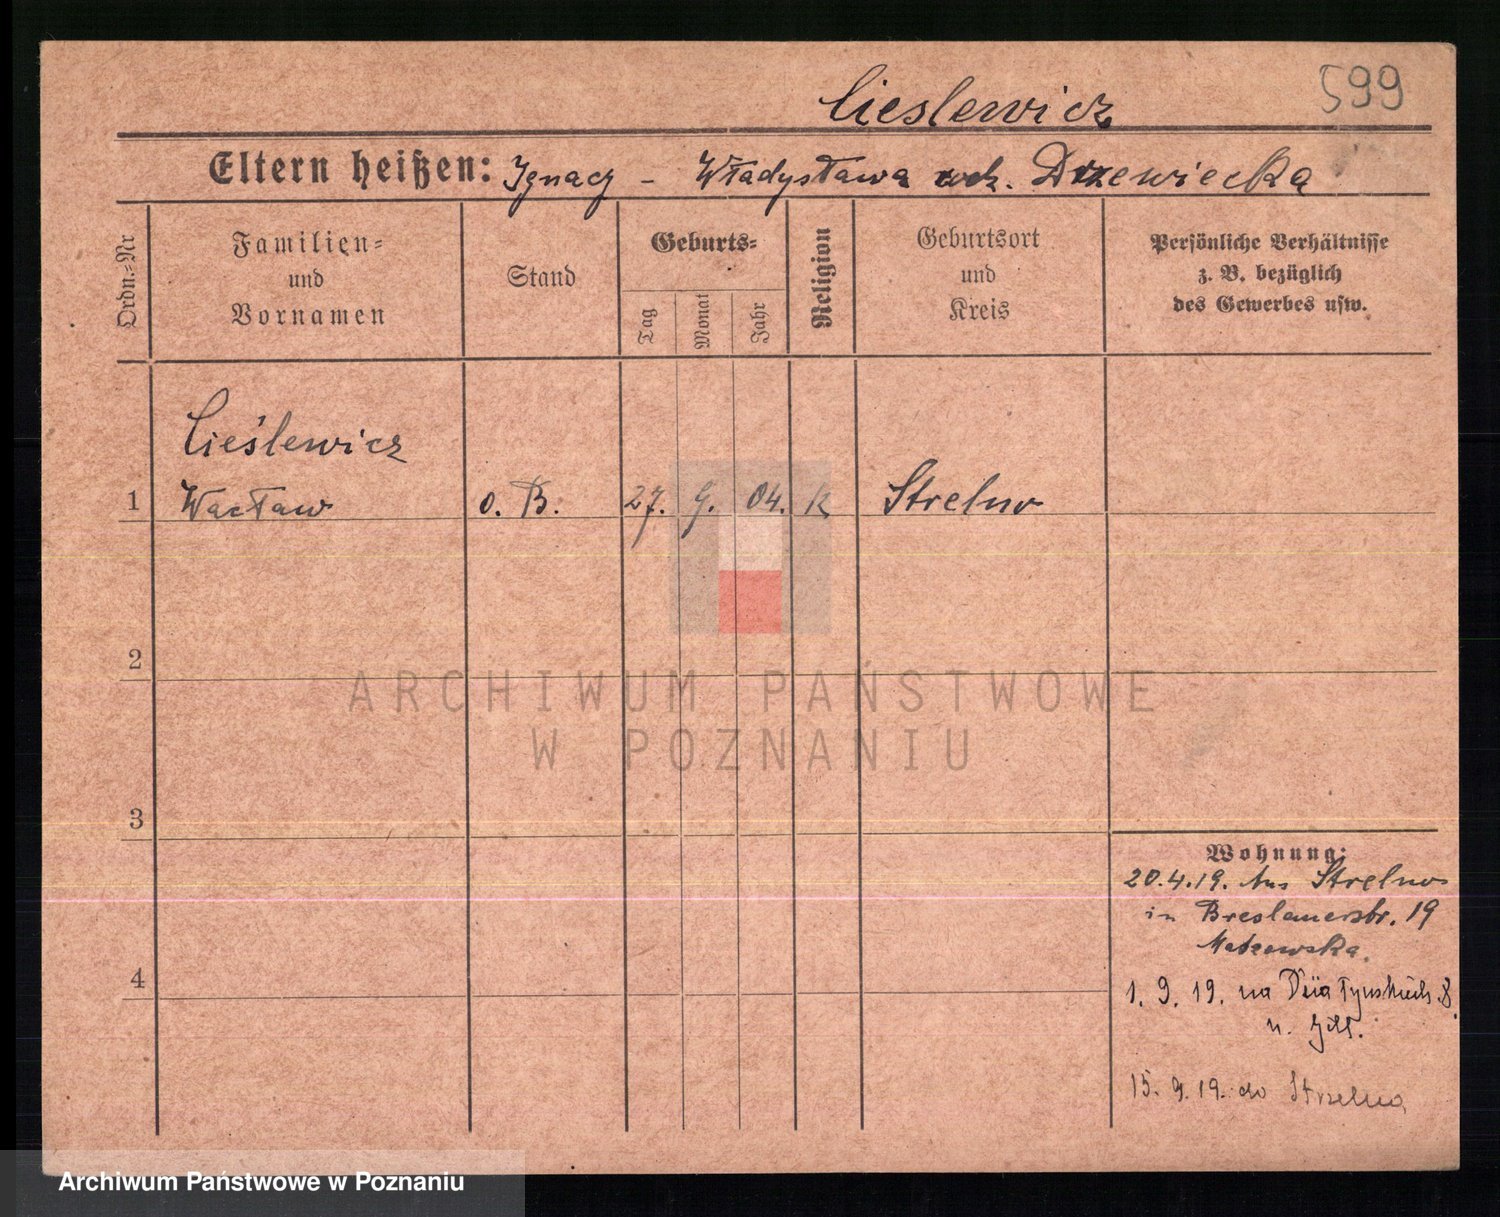 599
Cieslewicz
Eltern heißen: Ignacy - Władysława Drzewiecka
Ordn.=Nr
Familien=
und
Vornamen
Stand
Geburts=
Tag
Monat
Jahr
Religion
Geburtsort
und
Kreis
Persönliche Verhältnisse
z. B. bezüglich
des Gewerbes usw.
Cieślewicz
1 Wacław o. B. 27. 9. 04. K Strelno
2
ARCHIWUM PAŃSTWOWE
W POZNANIU
3
Wohnung:
20.4.19. Aus Strelno
in Breslauerstr. 19
4
1. 9. 19. na Działyńskich 8
u.
15. 9. 19. do Strzelna
Archiwum Państwowe w Poznaniu